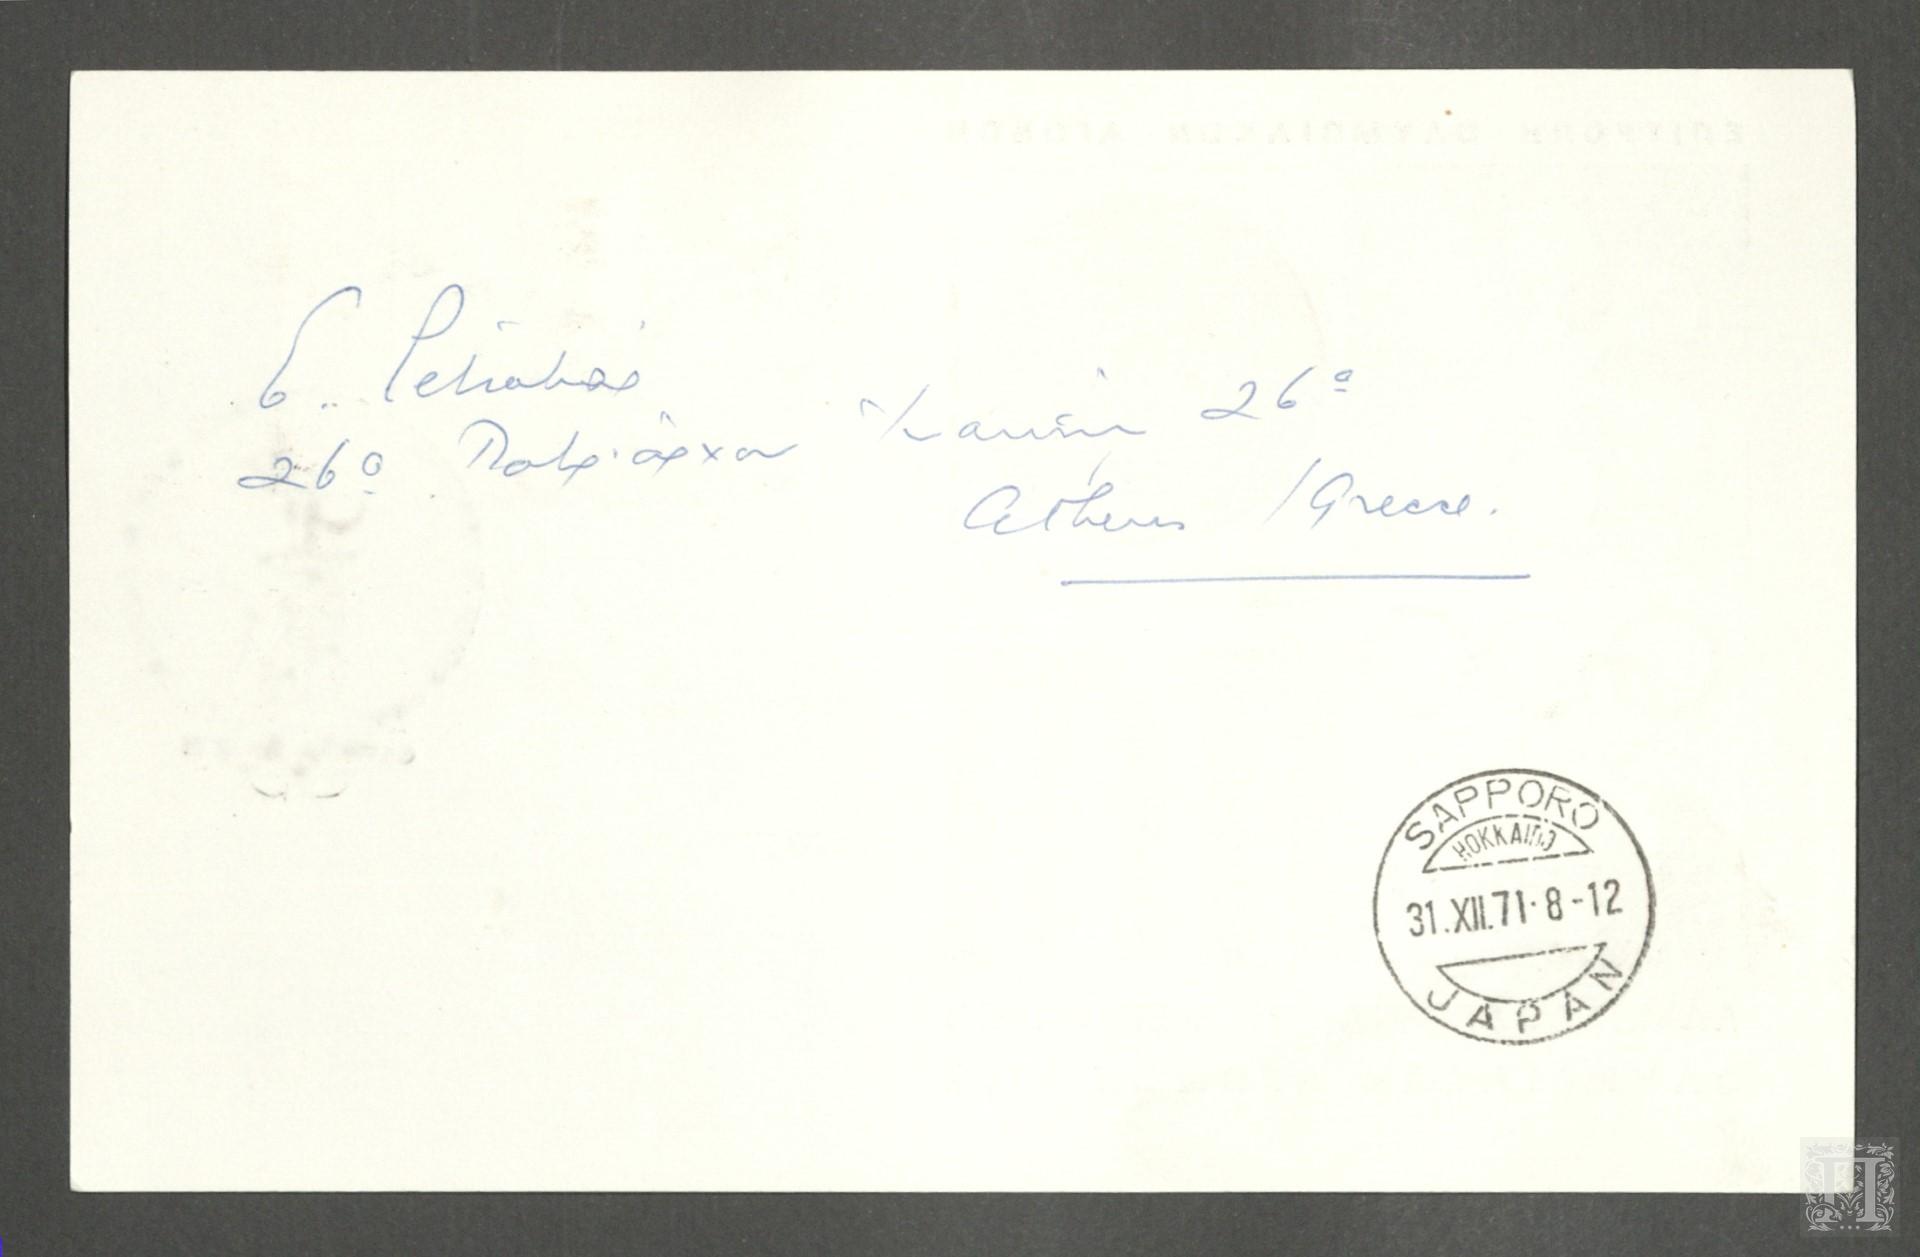 26ο Πατριάρχου Ἰωακείμ 26ο
Athens / Greece.
SAPPORO
HOKKAIDO
31.XII.71·8-12
JAPAN